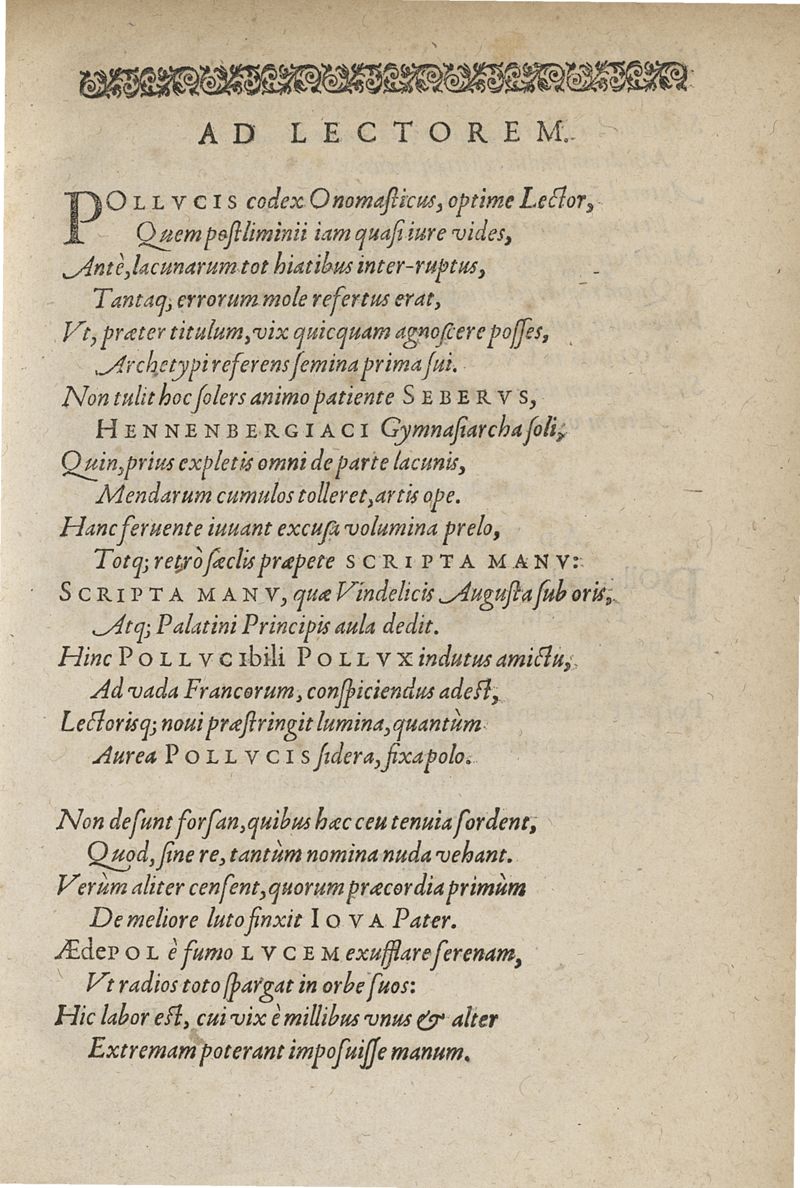 AD LECTOREM.
POLLVCIS codex Onomaſticus, optime Lector,
Quem poſtliminii iam quaſi iure vides,
Antè, lacunarum tot hiatibus inter-ruptus,
Tantaq; errorum mole refertus erat,
Vt, præter titulum, vix quicquam agnoſcere poſſes,
Archetypi referens ſemina prima ſui.
Non tulit hoc ſolers animo patiente SEBERVS,
HENNENBERGIACI Gymnaſiarcha ſoli,
Quin, prius expletis omni de parte lacunis,
Mendarum cumulos tolleret, artis ope.
Hanc feruente iuuant excuſa volumina prelo,
Totq; retrò ſæclis præpete SCRIPTA MANV:
SCRIPTA MANV, quæ Vindelicis Auguſta ſub oris,
Atq; Palatini Principis aula dedit.
Hinc POLLVCIbili POLLVX indutus amictu,
Ad vada Francorum, conſpiciendus adeſt,
Lectorisq; noui præſtringit lumina, quantùm
Aurea POLLVCIS ſidera, fixa polo.
Non deſunt forſan, quibus hæc ceu tenuia ſordent,
Quod, ſine re, tantùm nomina nuda vehant.
Verùm aliter cenſent, quorum præcordia primùm
De meliore luto finxit IOVA Pater.
ÆdePOL è fumo LVCEM exufflare ſerenam,
Vt radios toto ſpargat in orbe ſuos:
Hic labor eſt, cui vix è millibus vnus & alter
Extremam poterant impoſuiſſe manum.